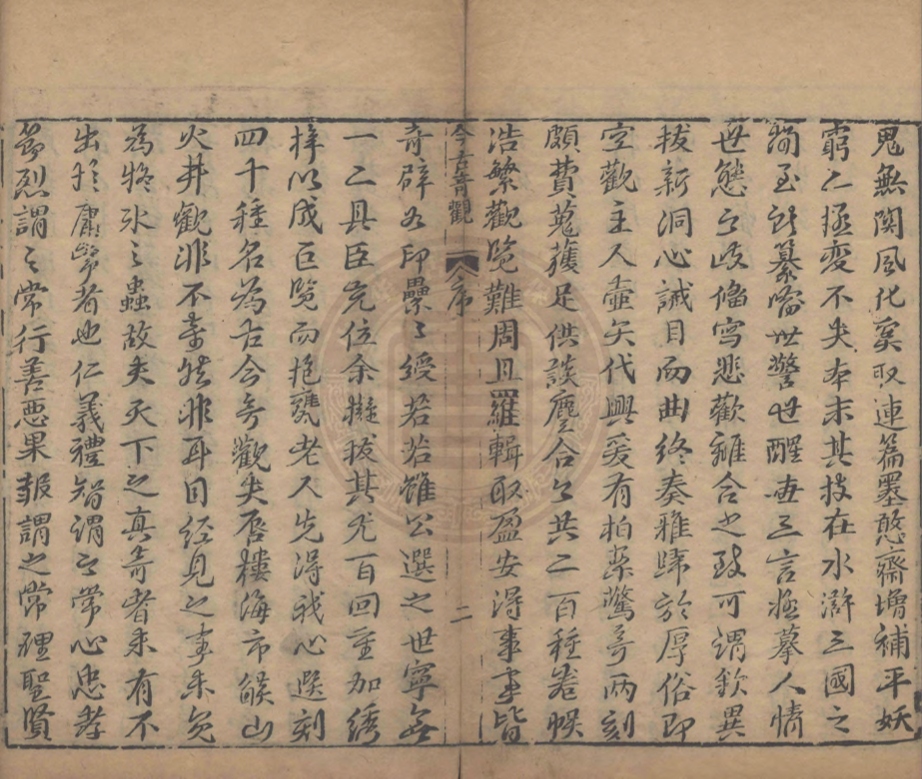 鬼無關風化奚取連篇墨憨齋增補平妖
窮工極變不失本末其技在水滸三國之
間至所纂喻世警世醒世三言極摹人情
世態之岐備寫悲歡離合之致可謂欽異
拔新洞心駴目而曲終奏雅歸於厚俗即
空觀主人壺矢代興爰有拍案驚奇兩刻
頗費蒐獲足供談麈合之共二百種卷帙
浩繁觀覽難周且羅輯取盈安得事事皆
今古奇觀 序 二
奇辟如印纍纍綬若若雖公選之世寧無
一二具臣充位余擬拔其尤百回重加繡
梓以成巨覽而抱甕老人先得我心選刻
四十種名為古今奇觀夫蜃樓海市燄山
火井觀非不奇然非耳目經見之事未免
為疑冰之蟲故夫天下之真奇者未有不
出於庸常者也仁義禮智謂之常心忠孝
節烈謂之常行善惡果報謂之常理聖賢